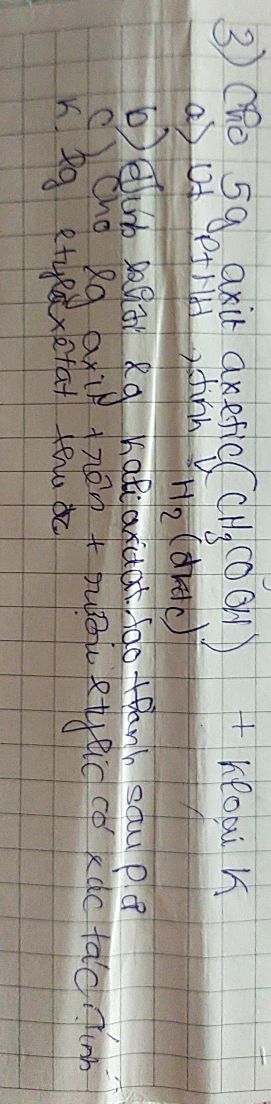 3) Cho 5g axit axetic (CH3COOH) + kloại K
a) Vt PtHH, tính V H2 (đktc)
b) Tính khối lg kali axitat tạo thành sau p.ứ
c) Cho lg axit + rượu etylic có xác tác. Tính
K. lg etyl axetat thu đc